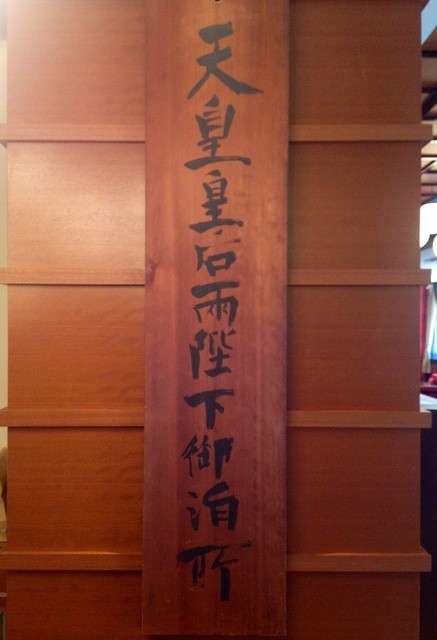 天皇皇后両陛下御泊所